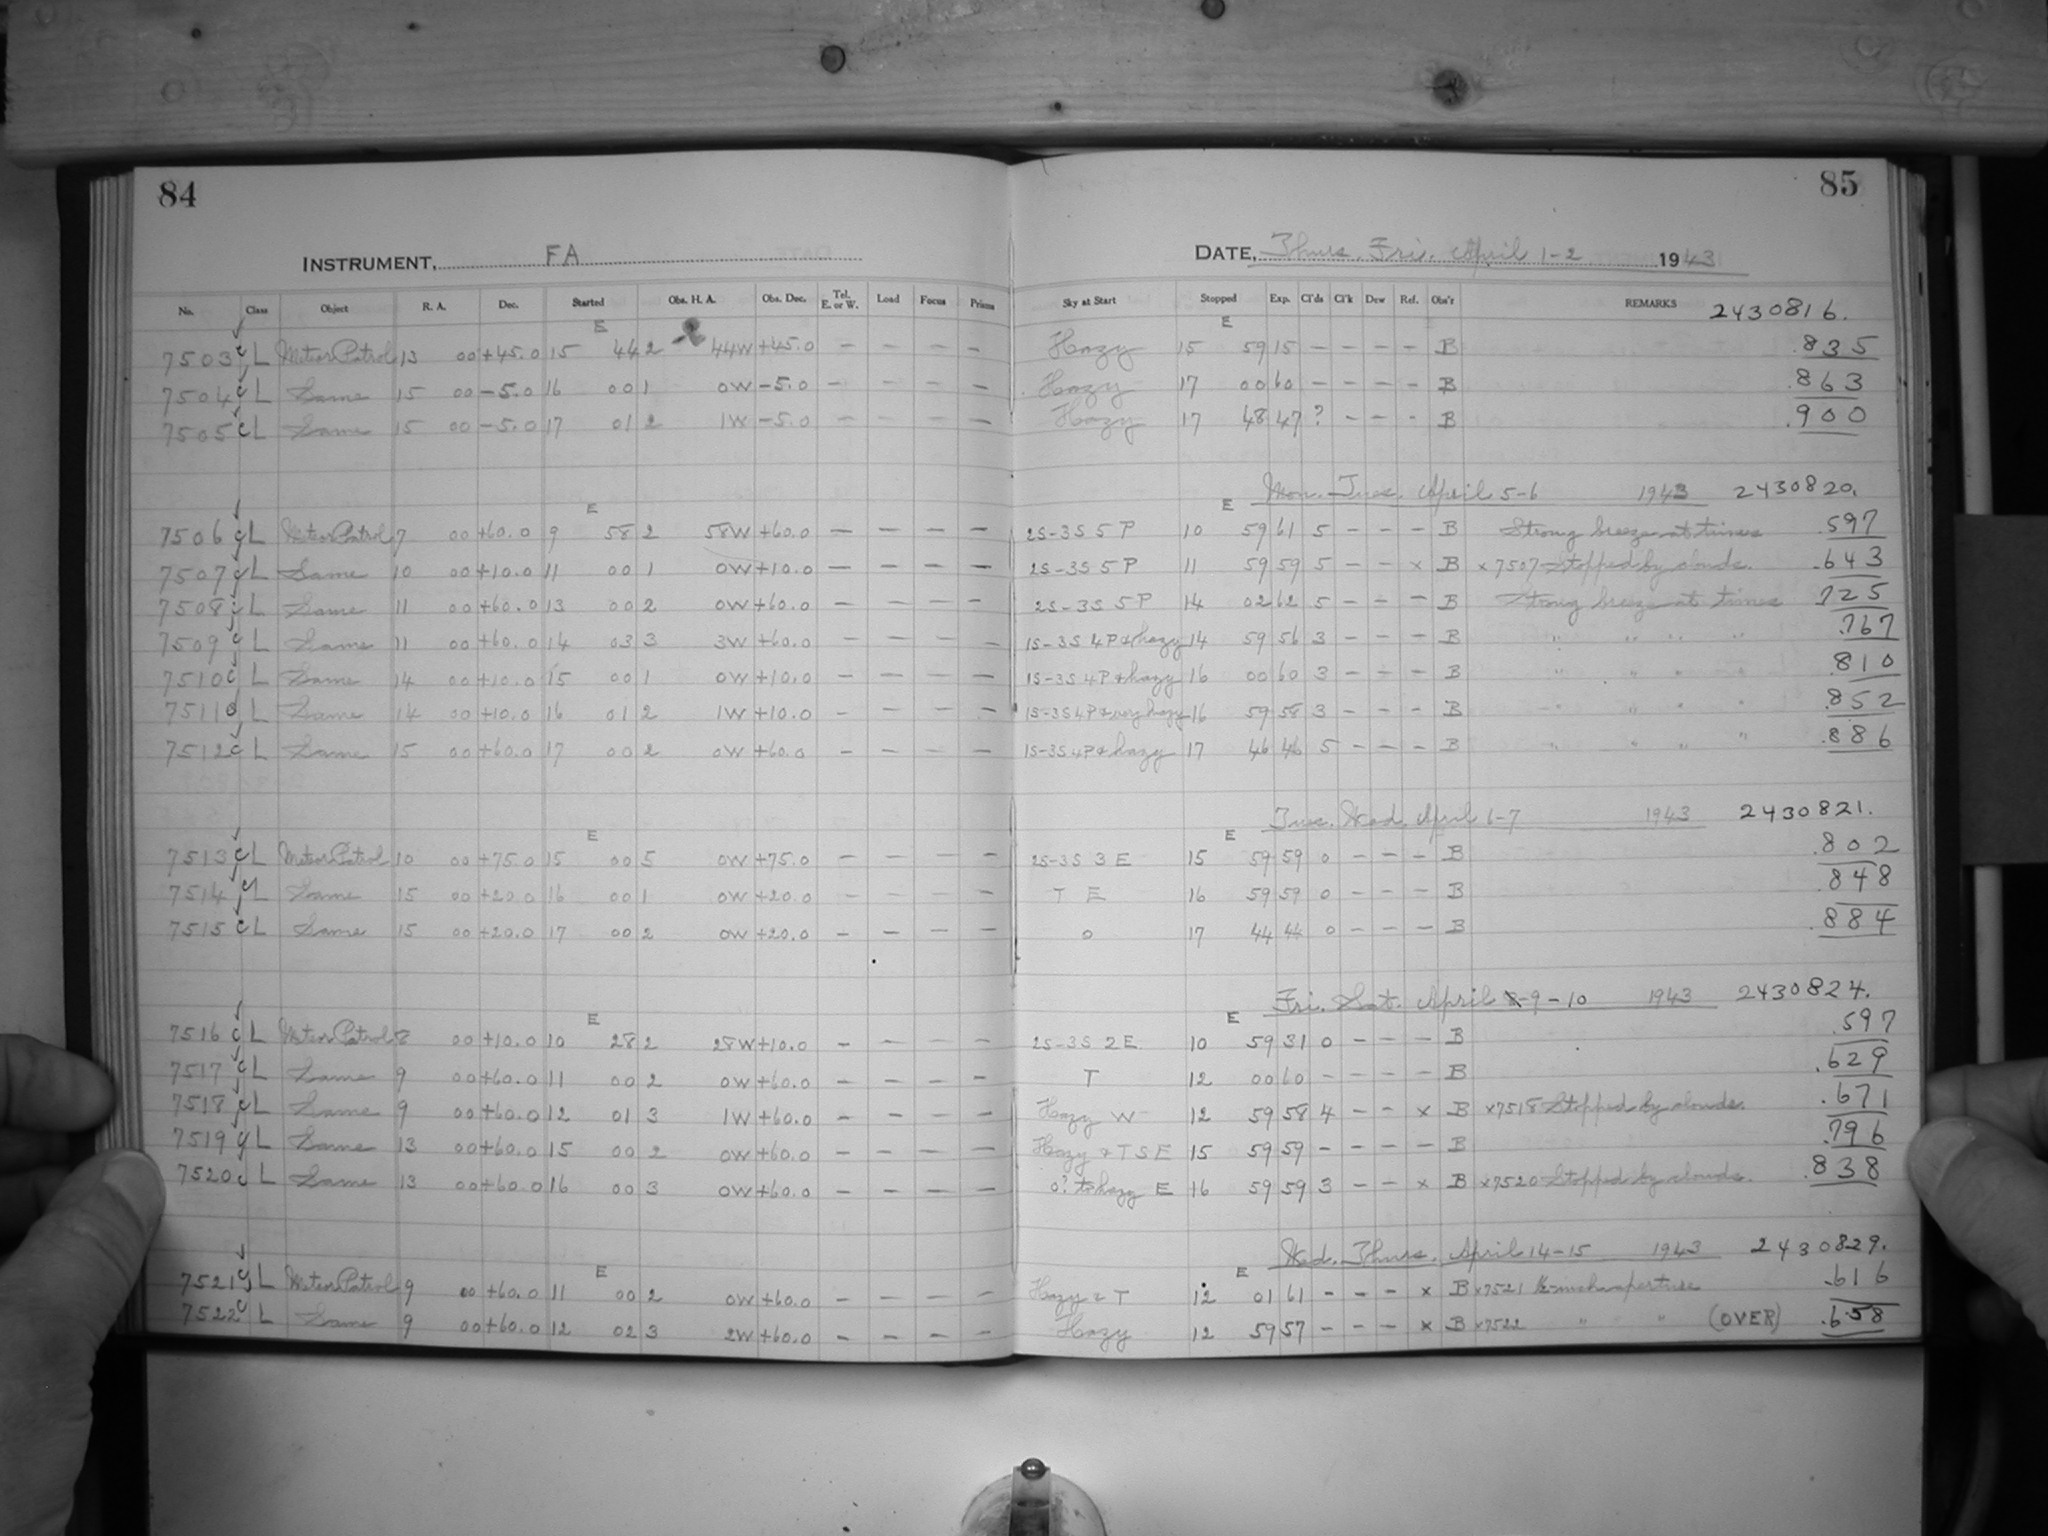 84
85
INSTRUMENT, FA
DATE, Thurs. Fri. April 1-2 1943
No. Class Object R. A. Dec. Started Obs. H. A. Obs. Dec. Tel. E. or W. Load Focus Prisms Sky at Start Stopped Exp. Cl'ds Cl'k Dew Ref. Obs'r REMARKS 2430816.
E E
7503 c L Meteor Patrol 13 00 +45.0 15 44 2 44W +45.0 – – – – Hazy 15 59 15 – – – – B .835
7504 c L Same 15 00 –5.0 16 00 1 0W –5.0 – – – – Hazy 17 00 60 – – – – B .863
7505 c L Same 15 00 –5.0 17 01 2 1W –5.0 – – – – Hazy 17 48 47 ? – – – B .900
Mon. Tues. April 5-6 1943 2430820.
E E
7506 c L Meteor Patrol 7 00 +60.0 9 58 2 58W +60.0 – – – – 2S-3S 5 P 10 59 61 5 – – – B Strong breeze at times .597
7507 c L Same 10 00 +10.0 11 00 1 0W +10.0 – – – – 2S-3S 5 P 11 59 59 5 – – x B x7507 Stopped by clouds. .643
7508 c L Same 11 00 +60.0 13 00 2 0W +60.0 – – – – 2S-3S 5 P 14 02 62 5 – – – B Strong breeze at times .725
7509 c L Same 11 00 +60.0 14 03 3 3W +60.0 – – – – 1S-3S 4 P & hazy 14 59 56 3 – – – B " " " " .767
7510 c L Same 14 00 +10.0 15 00 1 0W +10.0 – – – – 1S-3S 4 P & hazy 16 00 60 3 – – – B " " " " .810
7511 c L Same 14 00 +10.0 16 01 2 1W +10.0 – – – – 1S-3S 4 P & very hazy 16 59 58 3 – – – B " " " " .852
7512 c L Same 15 00 +60.0 17 00 2 0W +60.0 – – – – 1S-3S 4 P & hazy 17 46 46 5 – – – B " " " " .886
Tues. Wed. April 6-7 1943 2430821.
E E
7513 c L Meteor Patrol 10 00 +75.0 15 00 5 0W +75.0 – – – – 2S-3S 3 E 15 59 59 0 – – – B .802
7514 c L Same 15 00 +20.0 16 00 1 0W +20.0 – – – – T E 16 59 59 0 – – – B .848
7515 c L Same 15 00 +20.0 17 00 2 0W +20.0 – – – – 0 17 44 44 0 – – – B .884
Fri. Sat. April 9-10 1943 2430824.
E E
7516 c L Meteor Patrol 8 00 +10.0 10 28 2 28W +10.0 – – – – 2S-3S 2 E 10 59 31 0 – – – B .597
7517 c L Same 9 00 +60.0 11 00 2 0W +60.0 – – – – T 12 00 60 – – – – B .629
7518 c L Same 9 00 +60.0 12 01 3 1W +60.0 – – – – Hazy W 12 59 58 4 – – x B x7518 Stopped by clouds. .671
7519 c L Same 13 00 +60.0 15 00 2 0W +60.0 – – – – Hazy & T S E 15 59 59 – – – – B .796
7520 c L Same 13 00 +60.0 16 00 3 0W +60.0 – – – – 0? to hazy E 16 59 59 3 – – x B x7520 Stopped by clouds. .838
Wed. Thurs. April 14-15 1943 2430829.
E E
7521 c L Meteor Patrol 9 00 +60.0 11 00 2 0W +60.0 – – – – Hazy & T 12 01 61 – – – x B x7521 aperture .616
7522 c L Same 9 00 +60.0 12 02 3 2W +60.0 – – – – Hazy 12 59 57 – – – x B x7522 " " (OVER) .658